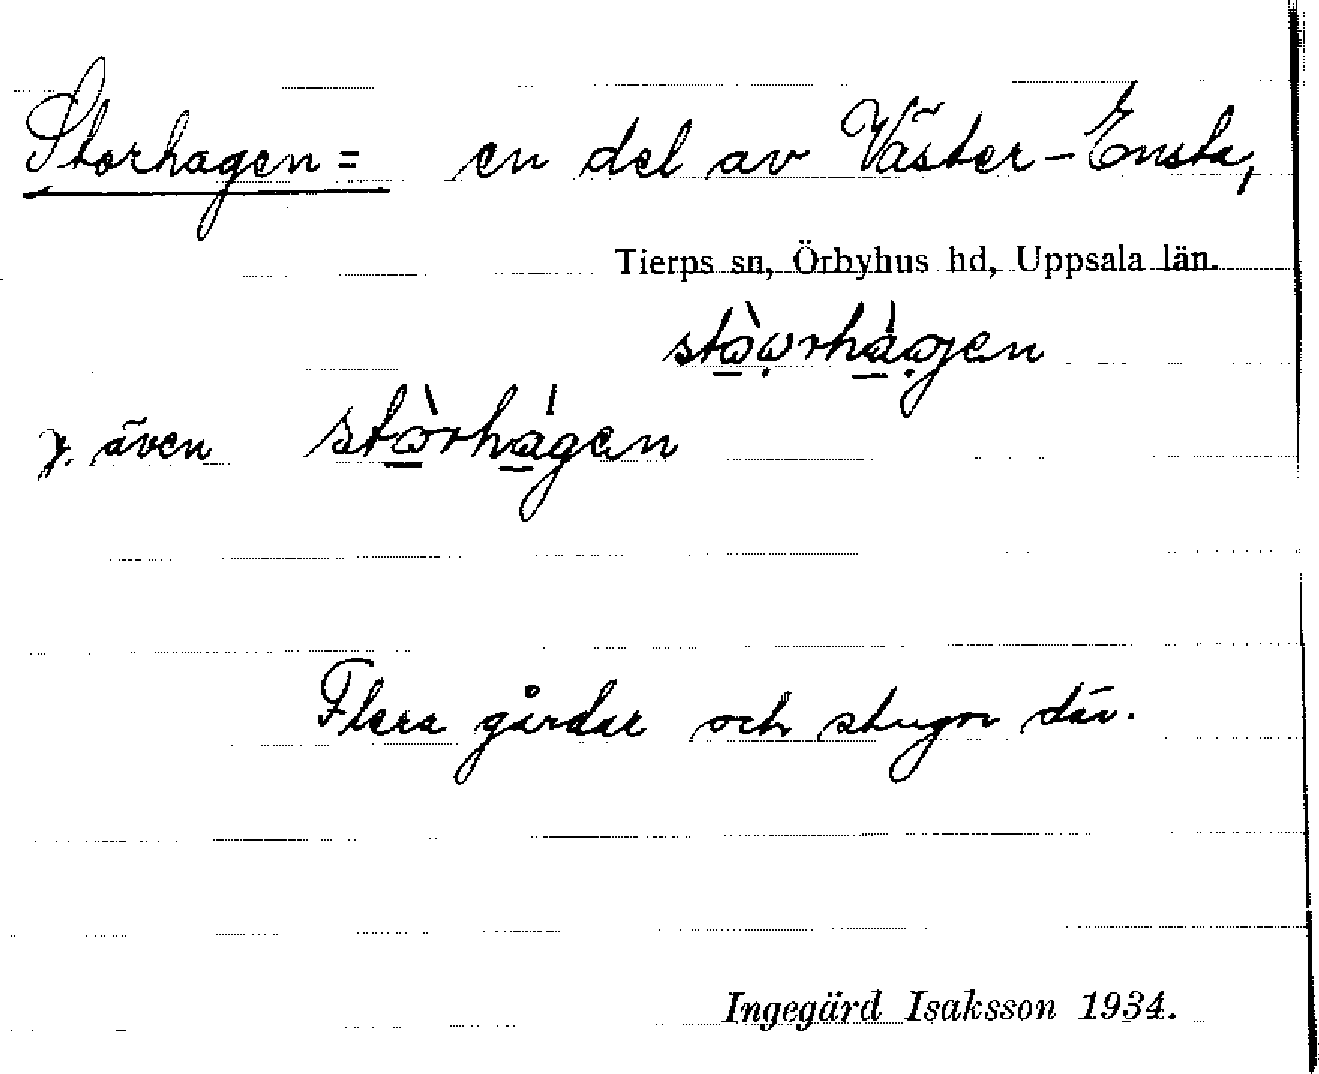 Storhagen = en del av Väster-Ensta,
Tierps sn, Örbyhus hd, Uppsala län.
stòorhàagen
y. även stòrhàgen
Flera gårdar och stugor där.
Ingegärd Isaksson 1934.